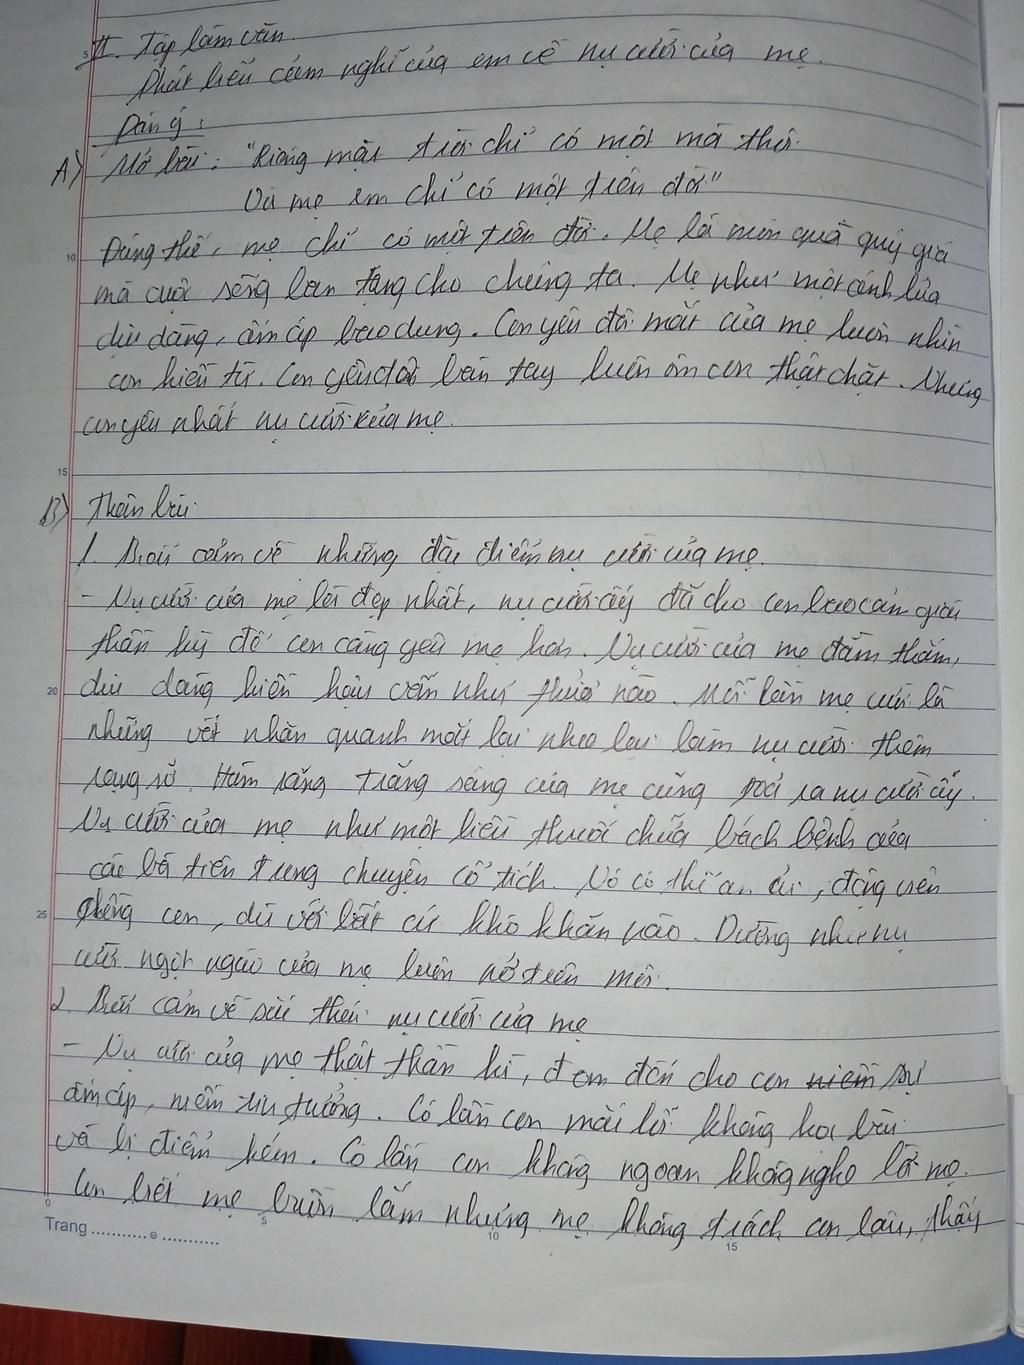 II. Tập làm văn
Phát biểu cảm nghĩ của em về nụ cười của mẹ.
Dàn ý:
A) Mở bài: "Riêng mặt trời chỉ có một mà thôi
Và mẹ em chỉ có một trên đời"
Đúng thế, mẹ chỉ có một trên đời. Mẹ là món quà quý giá
mà cuộc sống ban tặng cho chúng ta. Mẹ như một cánh lửa
dịu dàng, ấm áp bao dung. Con yêu đôi mắt của mẹ luôn nhìn
con hiền từ. Con yêu đôi bàn tay luôn ôm con thật chặt. Nhưng
con yêu nhất nụ cười của mẹ.
B) Thân bài
1. Biểu cảm về những đặc điểm nụ cười của mẹ.
- Nụ cười của mẹ là đẹp nhất, nụ cười ấy đã cho con bao cảm giác
thần kỳ để con càng yêu mẹ hơn. Nụ cười của mẹ đằm thắm,
dịu dàng hiền hậu vẫn như thuở nào. Mỗi lần mẹ cười là
những vết nhăn quanh mắt lại nheo lại làm nụ cười thêm
rạng rỡ. Hàm răng trắng sáng của mẹ cũng ra nụ cười ấy.
Nụ cười của mẹ như một liều thuốc chữa bách bệnh của
các bà tiên trong chuyện cổ tích. Nó có thể an ủi, động viên
con, dù với bất cứ khó khăn nào. Dường như nụ
cười ngọt ngào của mẹ luôn nở trên môi.
2. Biểu cảm về sắc thái nụ cười của mẹ
- Nụ cười của mẹ thật thần kì, đem đến cho con niềm sự
ấm áp, niềm tin tưởng. Có lần con mải không học bài
và bị điểm kém. Có lần con không ngoan không nghe lời mẹ.
Con biết mẹ buồn lắm nhưng mẹ không trách con lâu, thấy
Trang
0
5
10
15
5
10
15
20
25